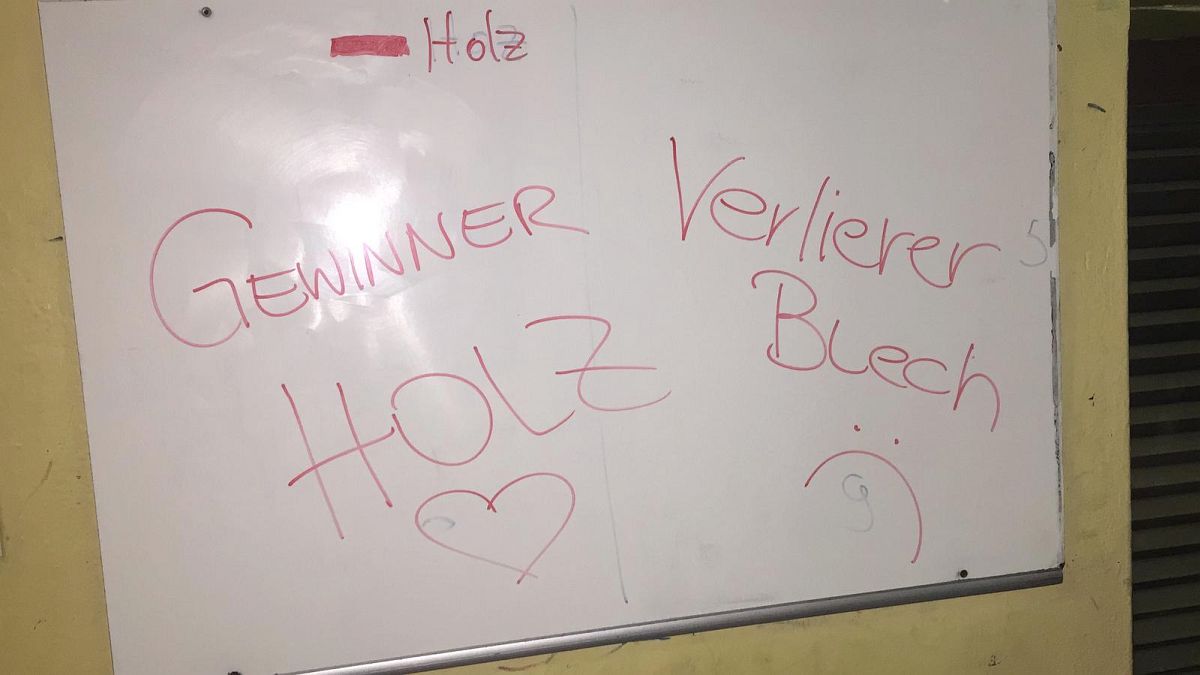 Holz
GEWINNER
HOLZ
Verlierer
Blech
5
9